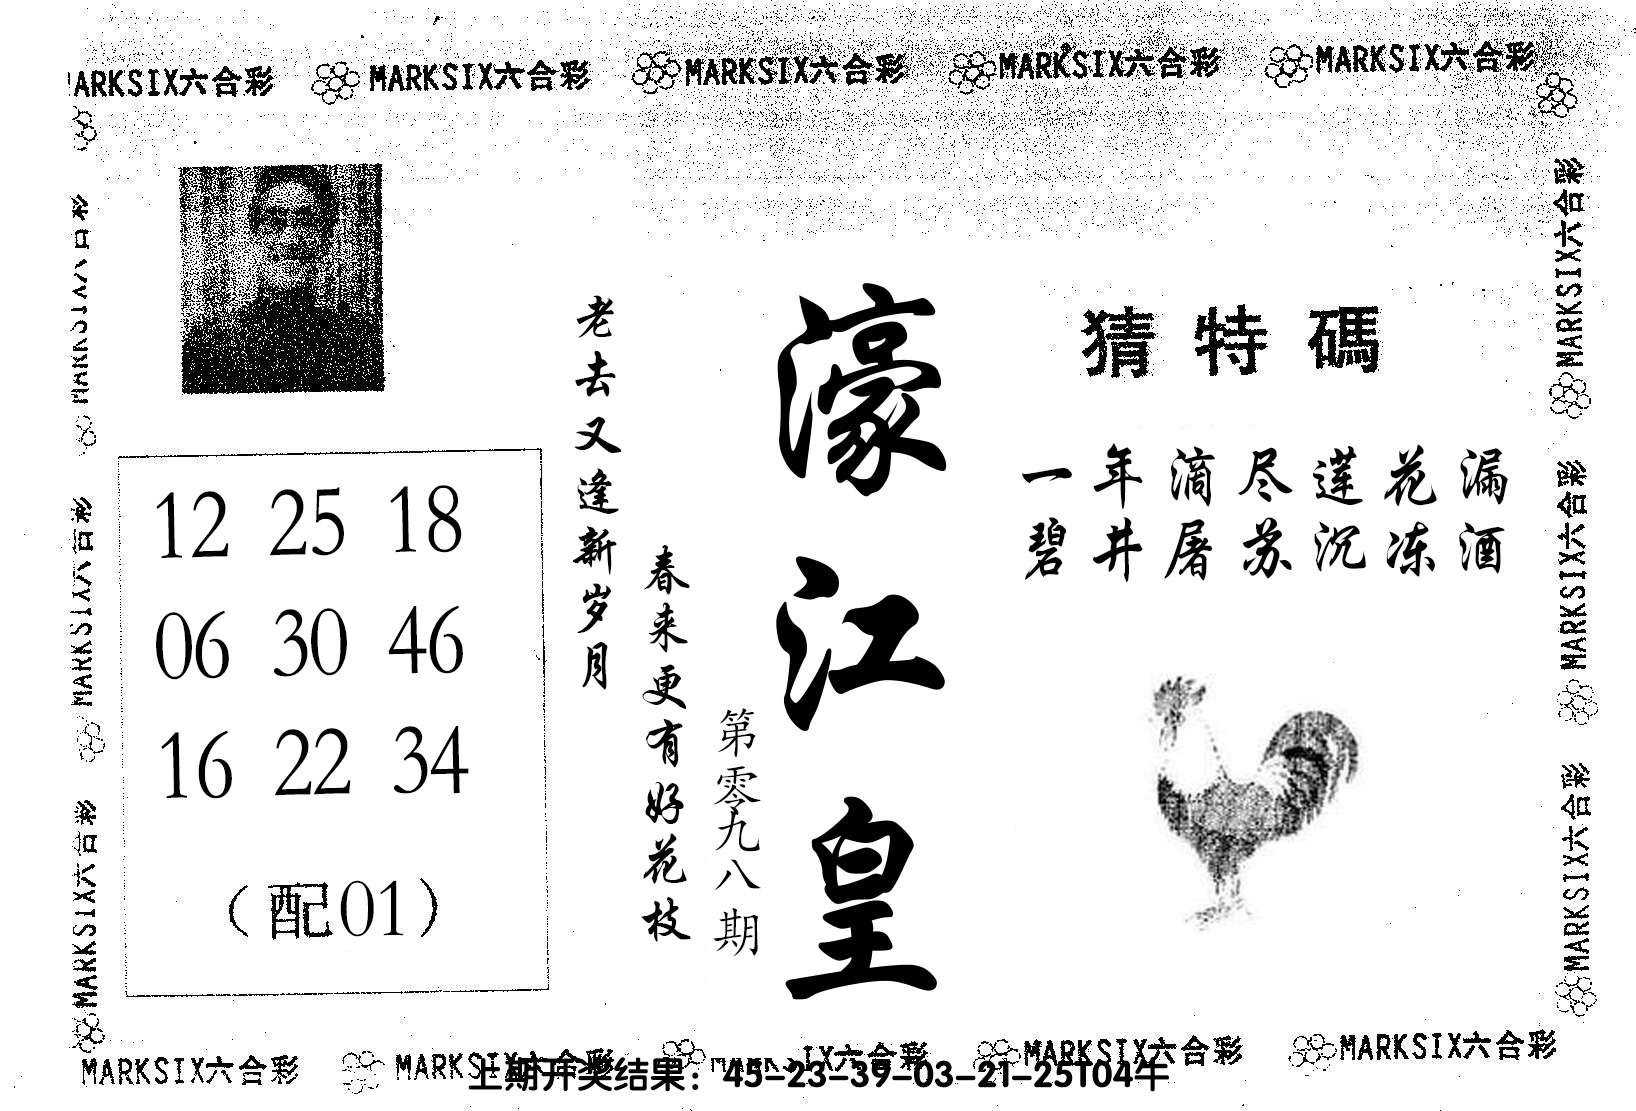 MARKSIX六合彩 MARKSIX六合彩 MARKSIX六合彩 MARKSIX六合彩 MARKSIX六合彩
MARKSIX六合彩
MARKSIX六合彩
MARKSIX六合彩
MARKSIX六合彩
MARKSIX六合彩
MARKSIX六合彩
12 25 18
06 30 46
16 22 34
（配01）
老去又逢新岁月
春来更有好花枝
第零九八期
濠江皇
猜特碼
一年滴尽莲花漏
碧井屠苏沉冻酒
MARKSIX六合彩 MARKSIX六合彩 MARKSIX六合彩 MARKSIX六合彩 MARKSIX六合彩
上期开奖结果：45-23-39-03-21-25T04牛